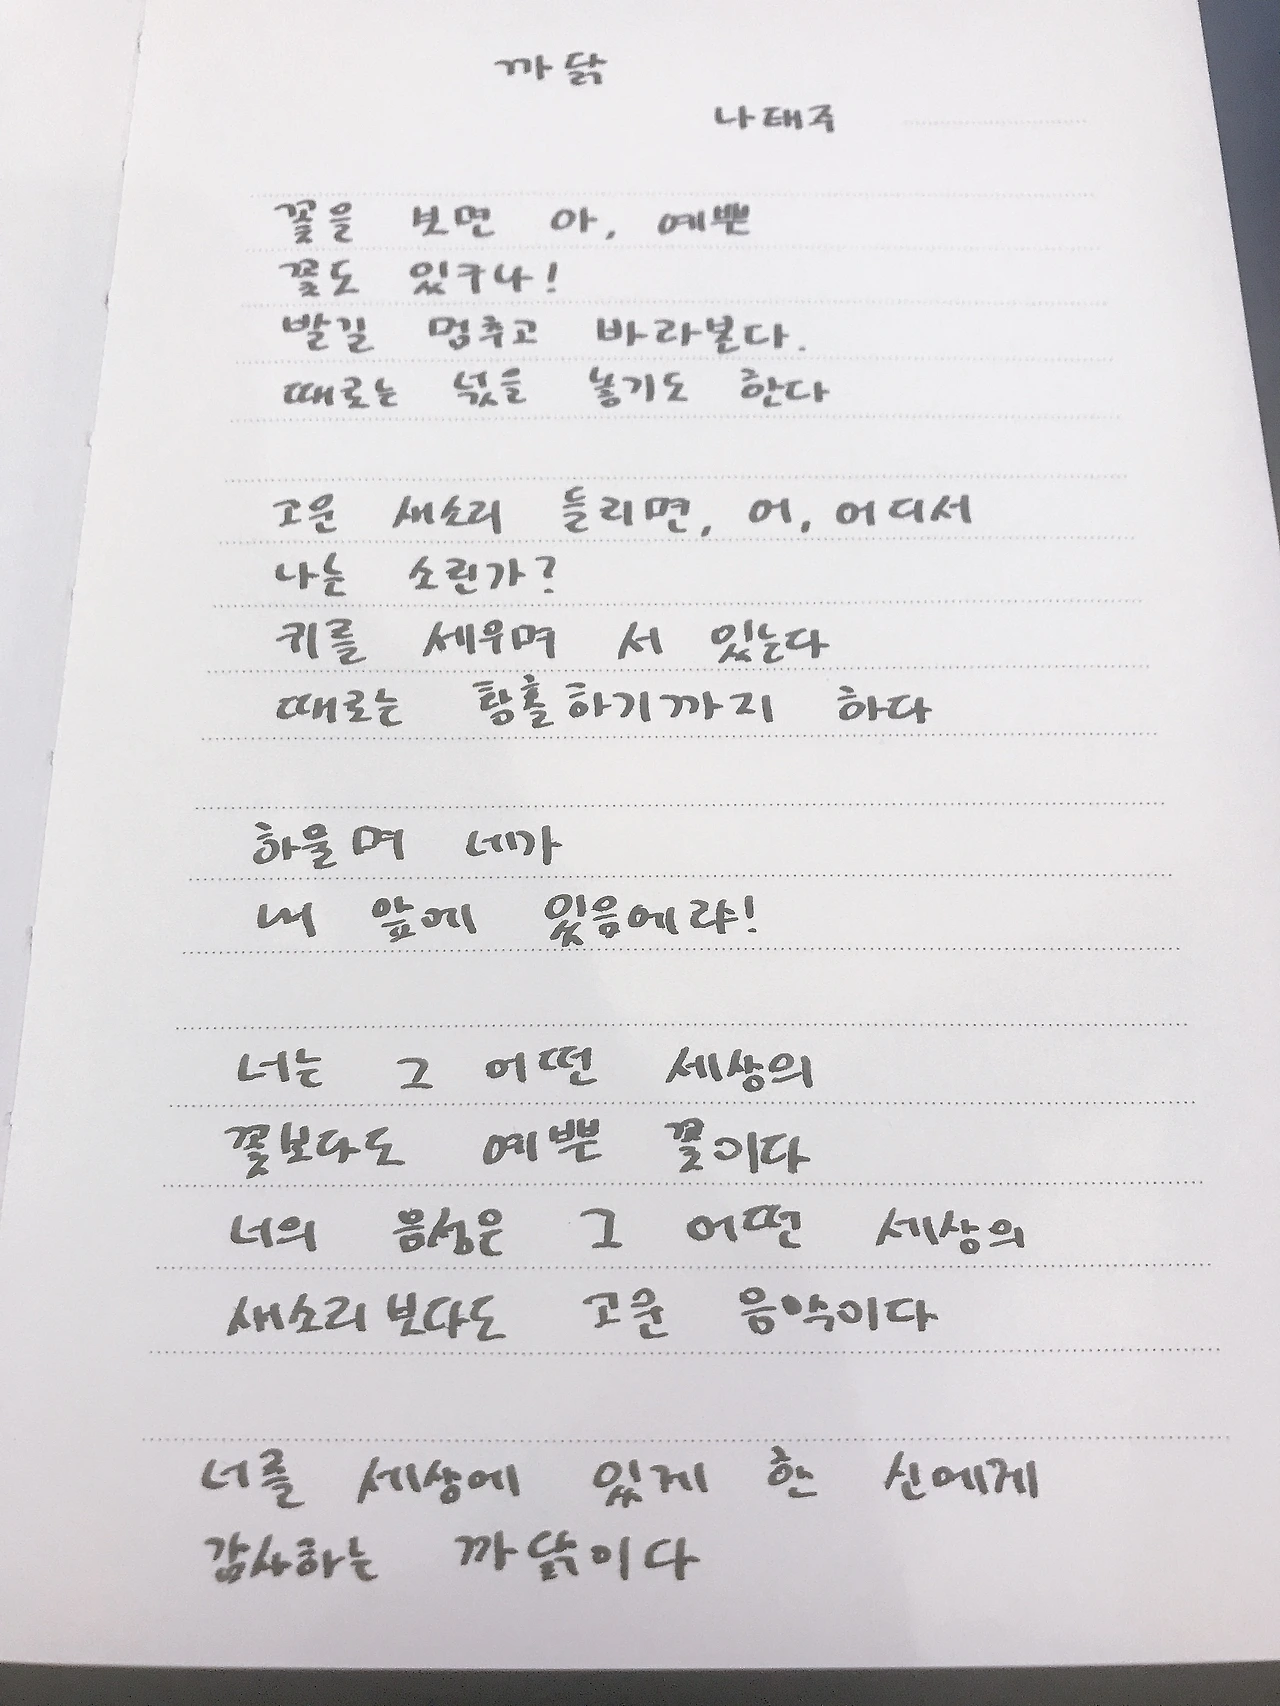 까닭
나태주
꽃을 보면 아, 예쁜
꽃도 있구나!
발길 멈추고 바라본다.
때로는 넋을 놓기도 한다
고운 새소리 들리면, 어, 어디서
나는 소린가?
귀를 세우며 서 있는다
때로는 황홀하기까지 하다
하물며 네가
내 앞에 있음에랴!
너는 그 어떤 세상의
꽃보다도 예쁜 꽃이다
너의 음성은 그 어떤 세상의
새소리보다도 고운 음악이다
너를 세상에 있게 한 신에게
감사하는 까닭이다